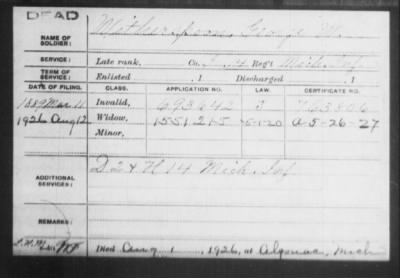 DEAD
NAME OF SOLDIER: Witherspoon, George W.
SERVICE: Late rank, Co. , 14 Reg't Mich. Inf.
TERM OF SERVICE: Enlisted , 1 Discharged , 1
DATE OF FILING. CLASS. APPLICATION NO. LAW. CERTIFICATE NO.
1889 Mar. 11 Invalid, 693642 3
1926 Aug 12 Widow, 1551215 5-1-20 A 5-26-27
Minor,
ADDITIONAL SERVICES: D 2 & H 14 Mich. Inf
REMARKS:
Died Aug 1, 1926, at Algonac, Mich